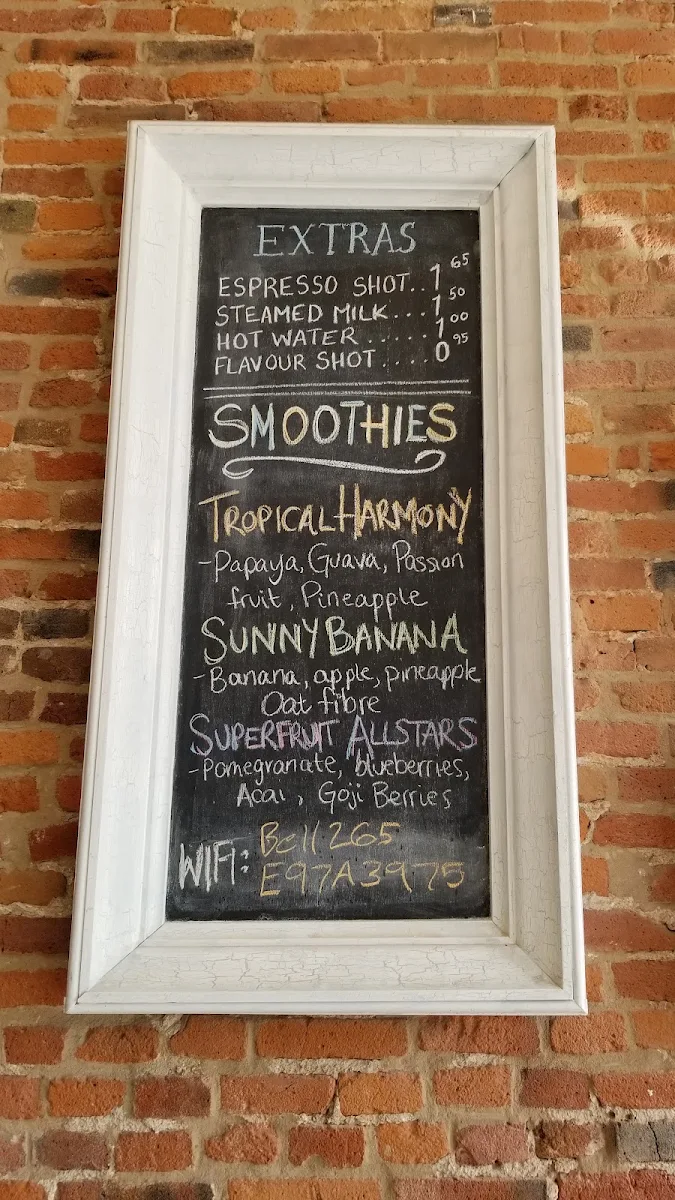 EXTRAS
ESPRESSO SHOT..1 65
STEAMED MILK...1 50
HOT WATER.....1 00
FLAVOUR SHOT....0 95
SMOOTHIES
TROPICAL HARMONY
-Papaya, Guava, Passion
fruit, Pineapple
SUNNY BANANA
-Banana, apple, pineapple
Oat fibre
SUPERFRUIT ALLSTARS
-Pomegranate, blueberries,
Acai, Goji Berries
WIFI: Bell265
E97A3975